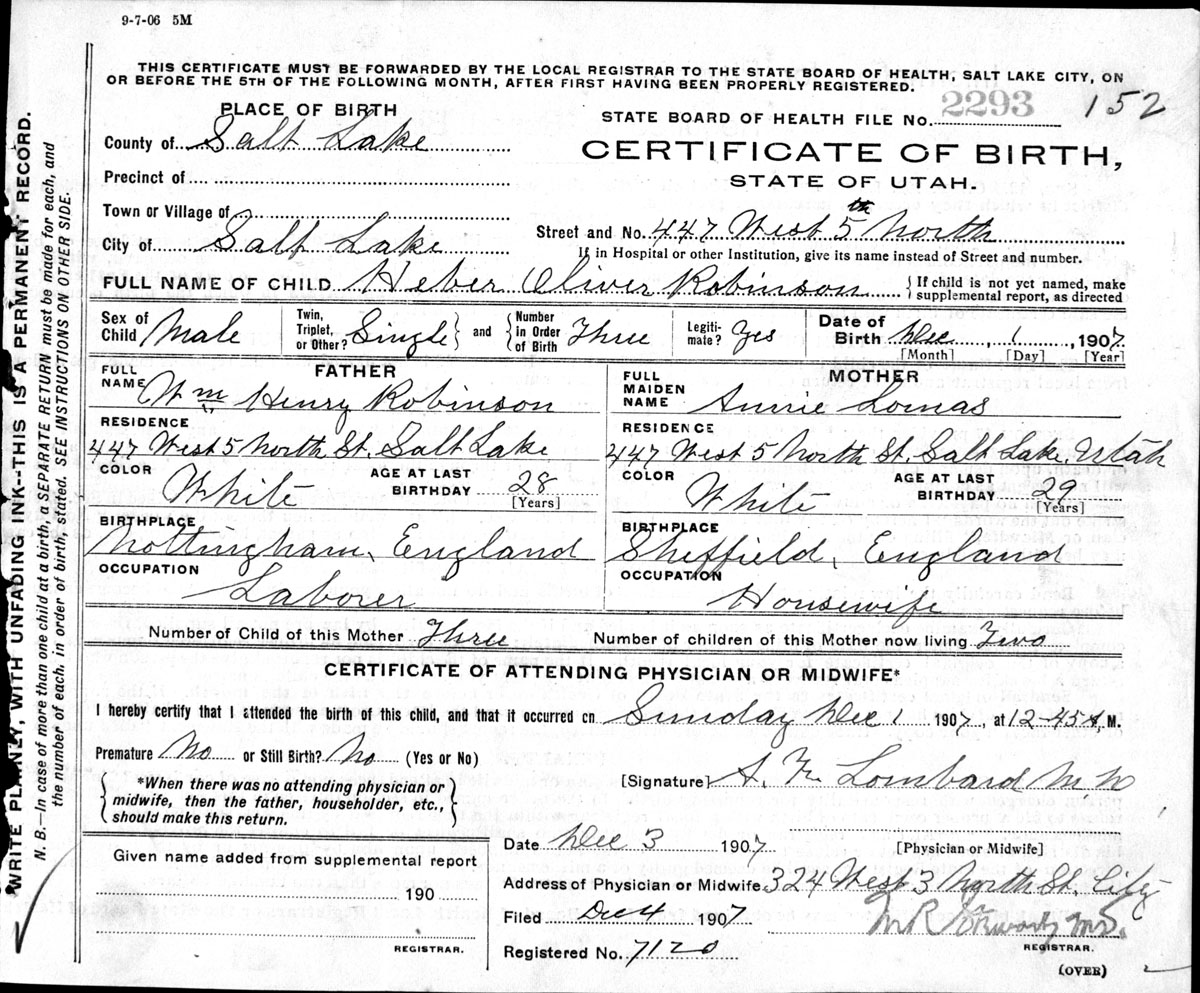 9-7-06 5M
THIS CERTIFICATE MUST BE FORWARDED BY THE LOCAL REGISTRAR TO THE STATE BOARD OF HEALTH, SALT LAKE CITY, ON
OR BEFORE THE 5TH OF THE FOLLOWING MONTH, AFTER FIRST HAVING BEEN PROPERLY REGISTERED.
PLACE OF BIRTH
STATE BOARD OF HEALTH FILE No. 2293 152
County of Salt Lake
CERTIFICATE OF BIRTH,
STATE OF UTAH.
Precinct of
Town or Village of
Street and No. 447 West 5th North
City of Salt Lake
If in Hospital or other Institution, give its name instead of Street and number.
FULL NAME OF CHILD Heber Oliver Robinson { If child is not yet named, make
supplemental report, as directed
Sex of Child Male Twin, Triplet, or Other? Single and Number in Order of Birth Three Legitimate? Yes Date of Birth Dec, 1, 1907
[Month] [Day] [Year]
FATHER MOTHER
FULL NAME Wm Henry Robinson FULL MAIDEN NAME Annie Lomas
RESIDENCE RESIDENCE
447 West 5 North St. Salt Lake 447 West 5 North St. Salt Lake, Utah
COLOR White AGE AT LAST BIRTHDAY 28 [Years] COLOR White AGE AT LAST BIRTHDAY 29 [Years]
BIRTHPLACE BIRTHPLACE
Nottingham, England Sheffield, England
OCCUPATION OCCUPATION
Laborer Housewife
Number of Child of this Mother Three Number of children of this Mother now living Two
CERTIFICATE OF ATTENDING PHYSICIAN OR MIDWIFE*
I hereby certify that I attended the birth of this child, and that it occurred on Sunday Dec 1 1907, at 12-45 A, M.
Premature No or Still Birth? No (Yes or No)
*When there was no attending physician or
midwife, then the father, householder, etc.,
should make this return.
[Signature] Lombard M.D
Date Dec 3 1907 [Physician or Midwife]
Given name added from supplemental report
190
REGISTRAR.
Address of Physician or Midwife 324 West 3 North St. City
Filed Dec 4 1907
REGISTRAR.
Registered No. 7120
(OVER)
WRITE PLAINLY, WITH UNFADING INK--THIS IS A PERMANENT RECORD.
N. B.—In case of more than one child at a birth, a SEPARATE RETURN must be made for each, and
the number of each, in order of birth, stated. SEE INSTRUCTIONS ON OTHER SIDE.